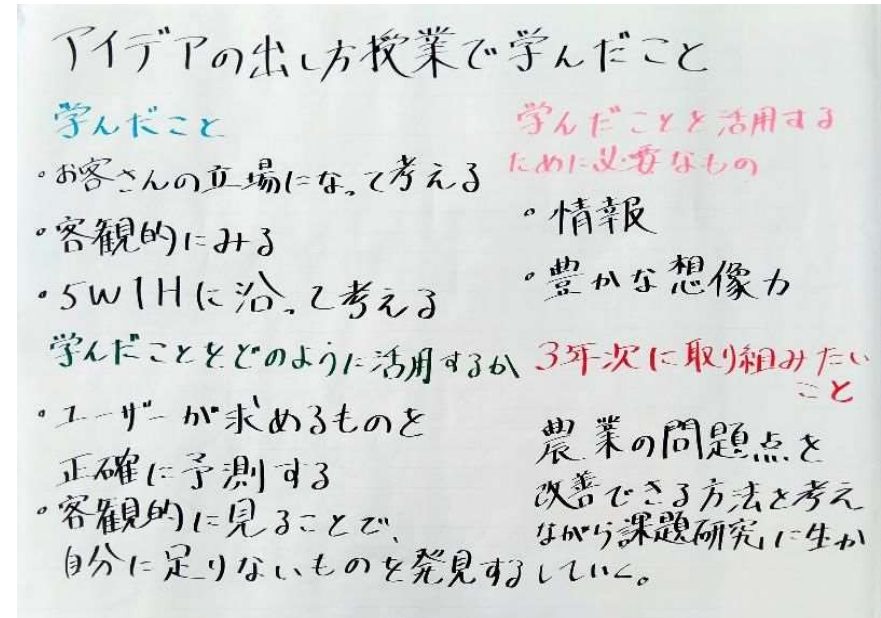 アイデアの出し方授業で学んだこと
学んだこと
・お客さんの立場になって考える
・客観的にみる
・5W1Hに沿って考える
学んだことをどのように活用するか
・ユーザーが求めるものを
正確に予測する
・客観的に見ることで、
自分に足りないものを発見する
学んだことを活用する
ために必要なもの
・情報
・豊かな想像力
3年次に取り組みたい
こと
農業の問題点を
改善できる方法を考え
ながら課題研究に生か
していく。